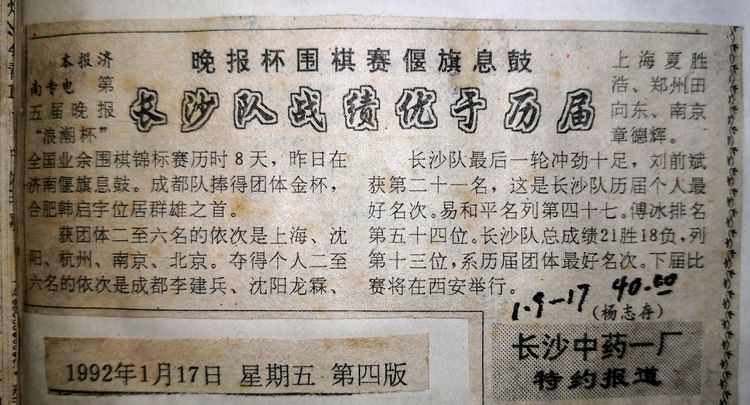 晚报杯围棋赛偃旗息鼓
长沙队战绩优于历届
本报济
南专电 第
五届晚报
“浪潮杯”
全国业余围棋锦标赛历时8天，昨日在
济南偃旗息鼓。成都队捧得团体金杯，
合肥韩启宇位居群雄之首。
获团体二至六名的依次是上海、沈
阳、杭州、南京、北京。夺得个人二至
六名的依次是成都李建兵、沈阳龙霖、
上海夏胜
浩、郑州田
向东、南京
章德辉。
长沙队最后一轮冲劲十足，刘前斌
获第二十一名，这是长沙队历届个人最
好名次。易和平名列第四十七。傅冰排名
第五十四位。长沙队总成绩21胜18负，列
第十三位，系历届团体最好名次。下届比
赛将在西安举行。
1.9-17 40.00
（杨志存）
长沙中药一厂
特约报道
1992年1月17日 星期五 第四版